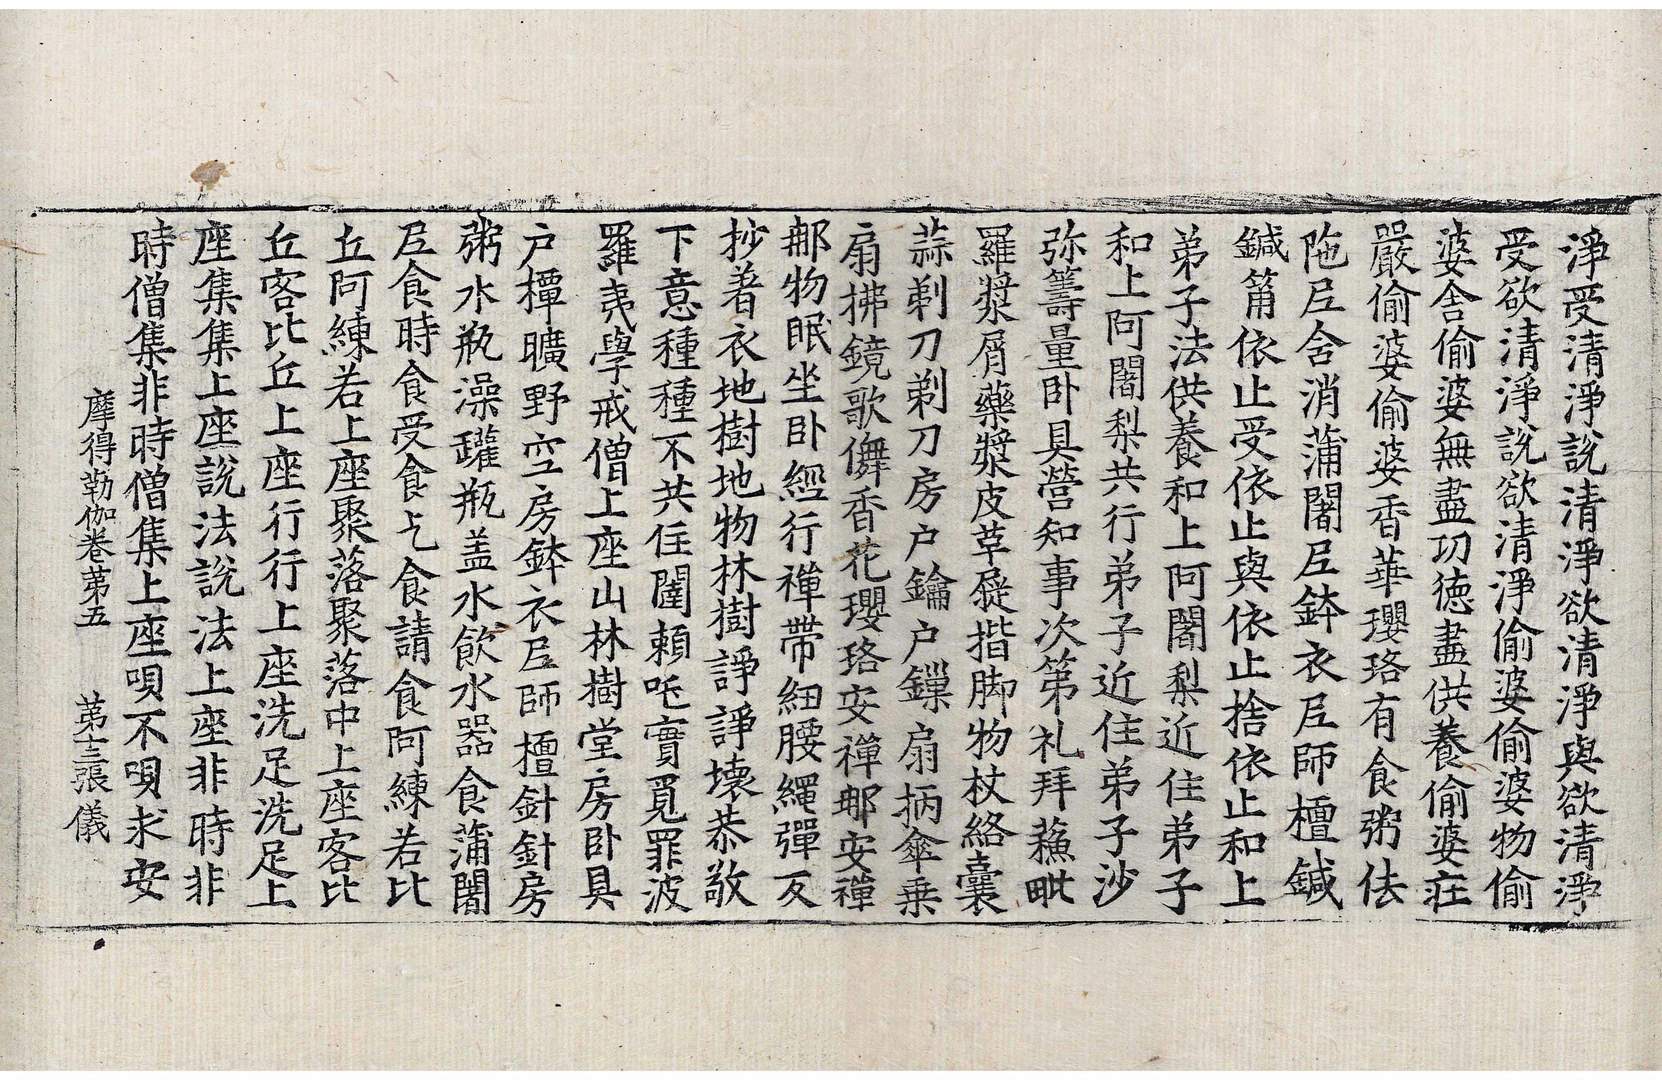 淨受清淨說清淨欲清淨與欲清淨
受欲清淨說欲清淨偷婆偷婆物偷
婆舍偷婆無盡功德盡供養偷婆莊
嚴偷婆偷婆香華瓔珞有食粥佉
陁尼舍消蒲闍尼鉢衣尼師檀鍼
鍼筩依止受依止與依止捨依止和上
弟子法供養和上阿闍梨近住弟子
和上阿闍梨共行弟子近住弟子沙
弥籌量卧具營知事次第礼拜蘓毗
羅漿屑藥漿皮草屣揩脚物杖絡囊
蒜剃刀剃刀房户鑰户鏁扇柄傘乗
扇拂鏡歌儛香花瓔珞安禪䣛安禪
䣛物眠坐卧經行禪帶紐腰繩彈反
抄著衣地樹地物林樹諍諍壞恭敬
下意種種不共住闥賴吒實覓罪波
羅夷學戒僧上座山林樹堂房卧具
户橝曠野空房鉢衣尼師檀針針房
粥水瓶澡罐瓶盖水飲水器食蒲闍
尼食時食受食乞食請食阿練若比
丘阿練若上座聚落聚落中上座客比
丘客比丘上座行行上座洗足洗足上
座集集上座說法說法上座非時非
時僧集非時僧集上座唄不唄求安
摩得勒伽卷第五　第三張　儀